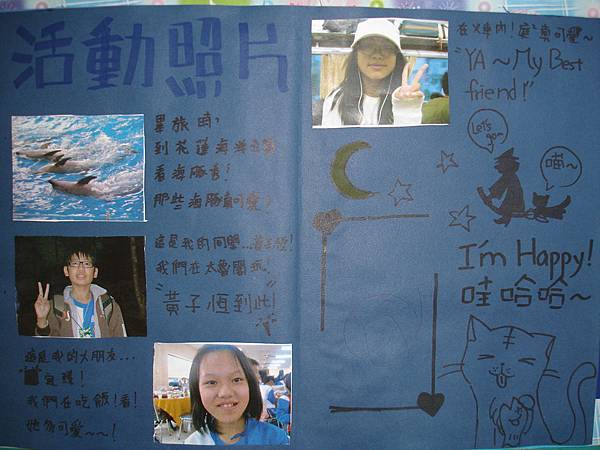 活動照片
畢旅時,
到花蓮海洋公園
看海豚秀!
那些海豚真可愛!
這是我的同學...黃子恆!
我們在太魯閣玩.
"黃子恆到此!"
這是我的大朋友...
宜瑾!
我們在吃飯!看!
她多可愛~~!
在火車內!庭真可愛~
"YA~My Best
friend!"
Let's
go~
喵~
I'm Happy!
哇哈哈~